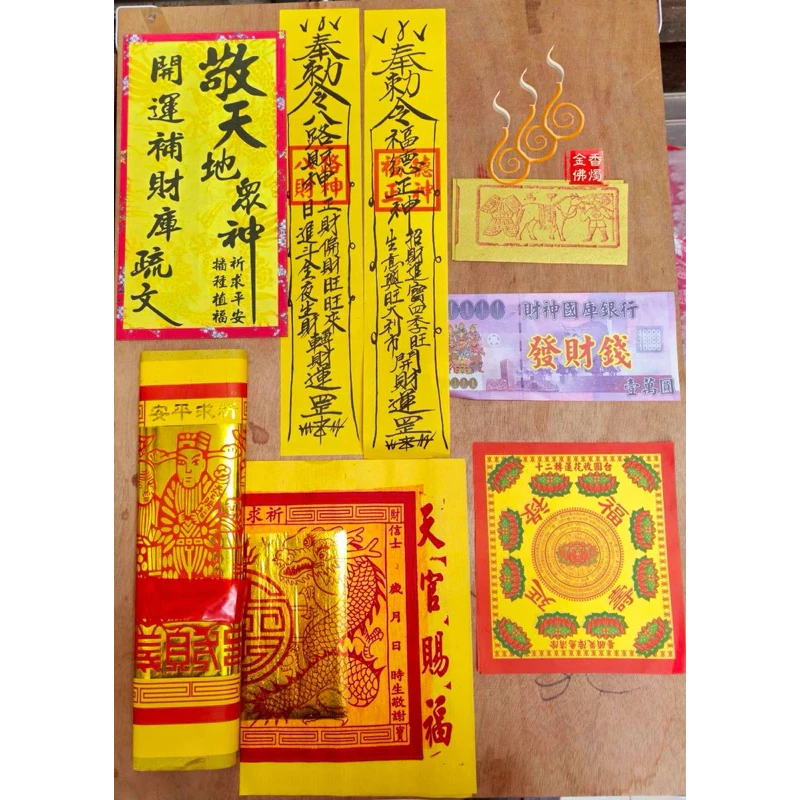 敬天地眾神
祈求平安
播種植福
開運補財庫疏文
奉勅令八路財神
正財偏財旺旺來
日進斗金夜生財
轉財運罡
八路財神
奉勅令福德正神
招財進寶四季旺
生意興旺大利市
開財運罡
福德正神
香燭
金佛
0000
財神國庫銀行
發財錢
壹萬圓
0000
安平求祈
求祈
財
信士 歲月日時生敬謝寶
天官賜福
十二轉蓮花收圓台
福
祿
壽
延